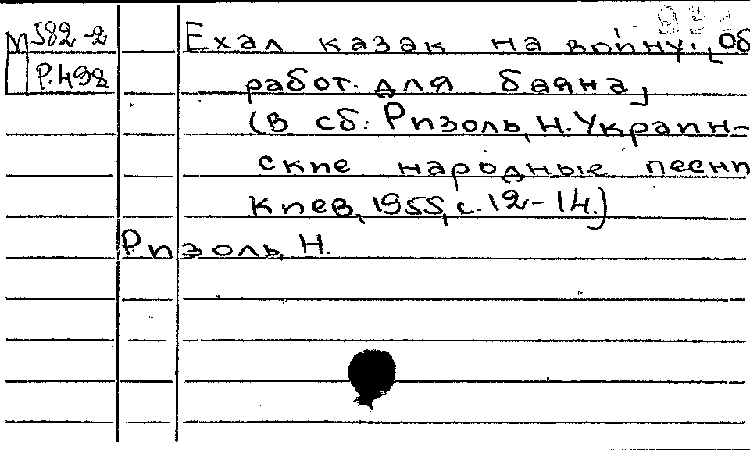 М 582-2
Р.498
Ехал казак на войну. [Об
работ. для баяна]
(В сб: Ризоль, Н. Украин-
ские народные песни
Киев, 1955, с. 12-14.)
Ризоль, Н.